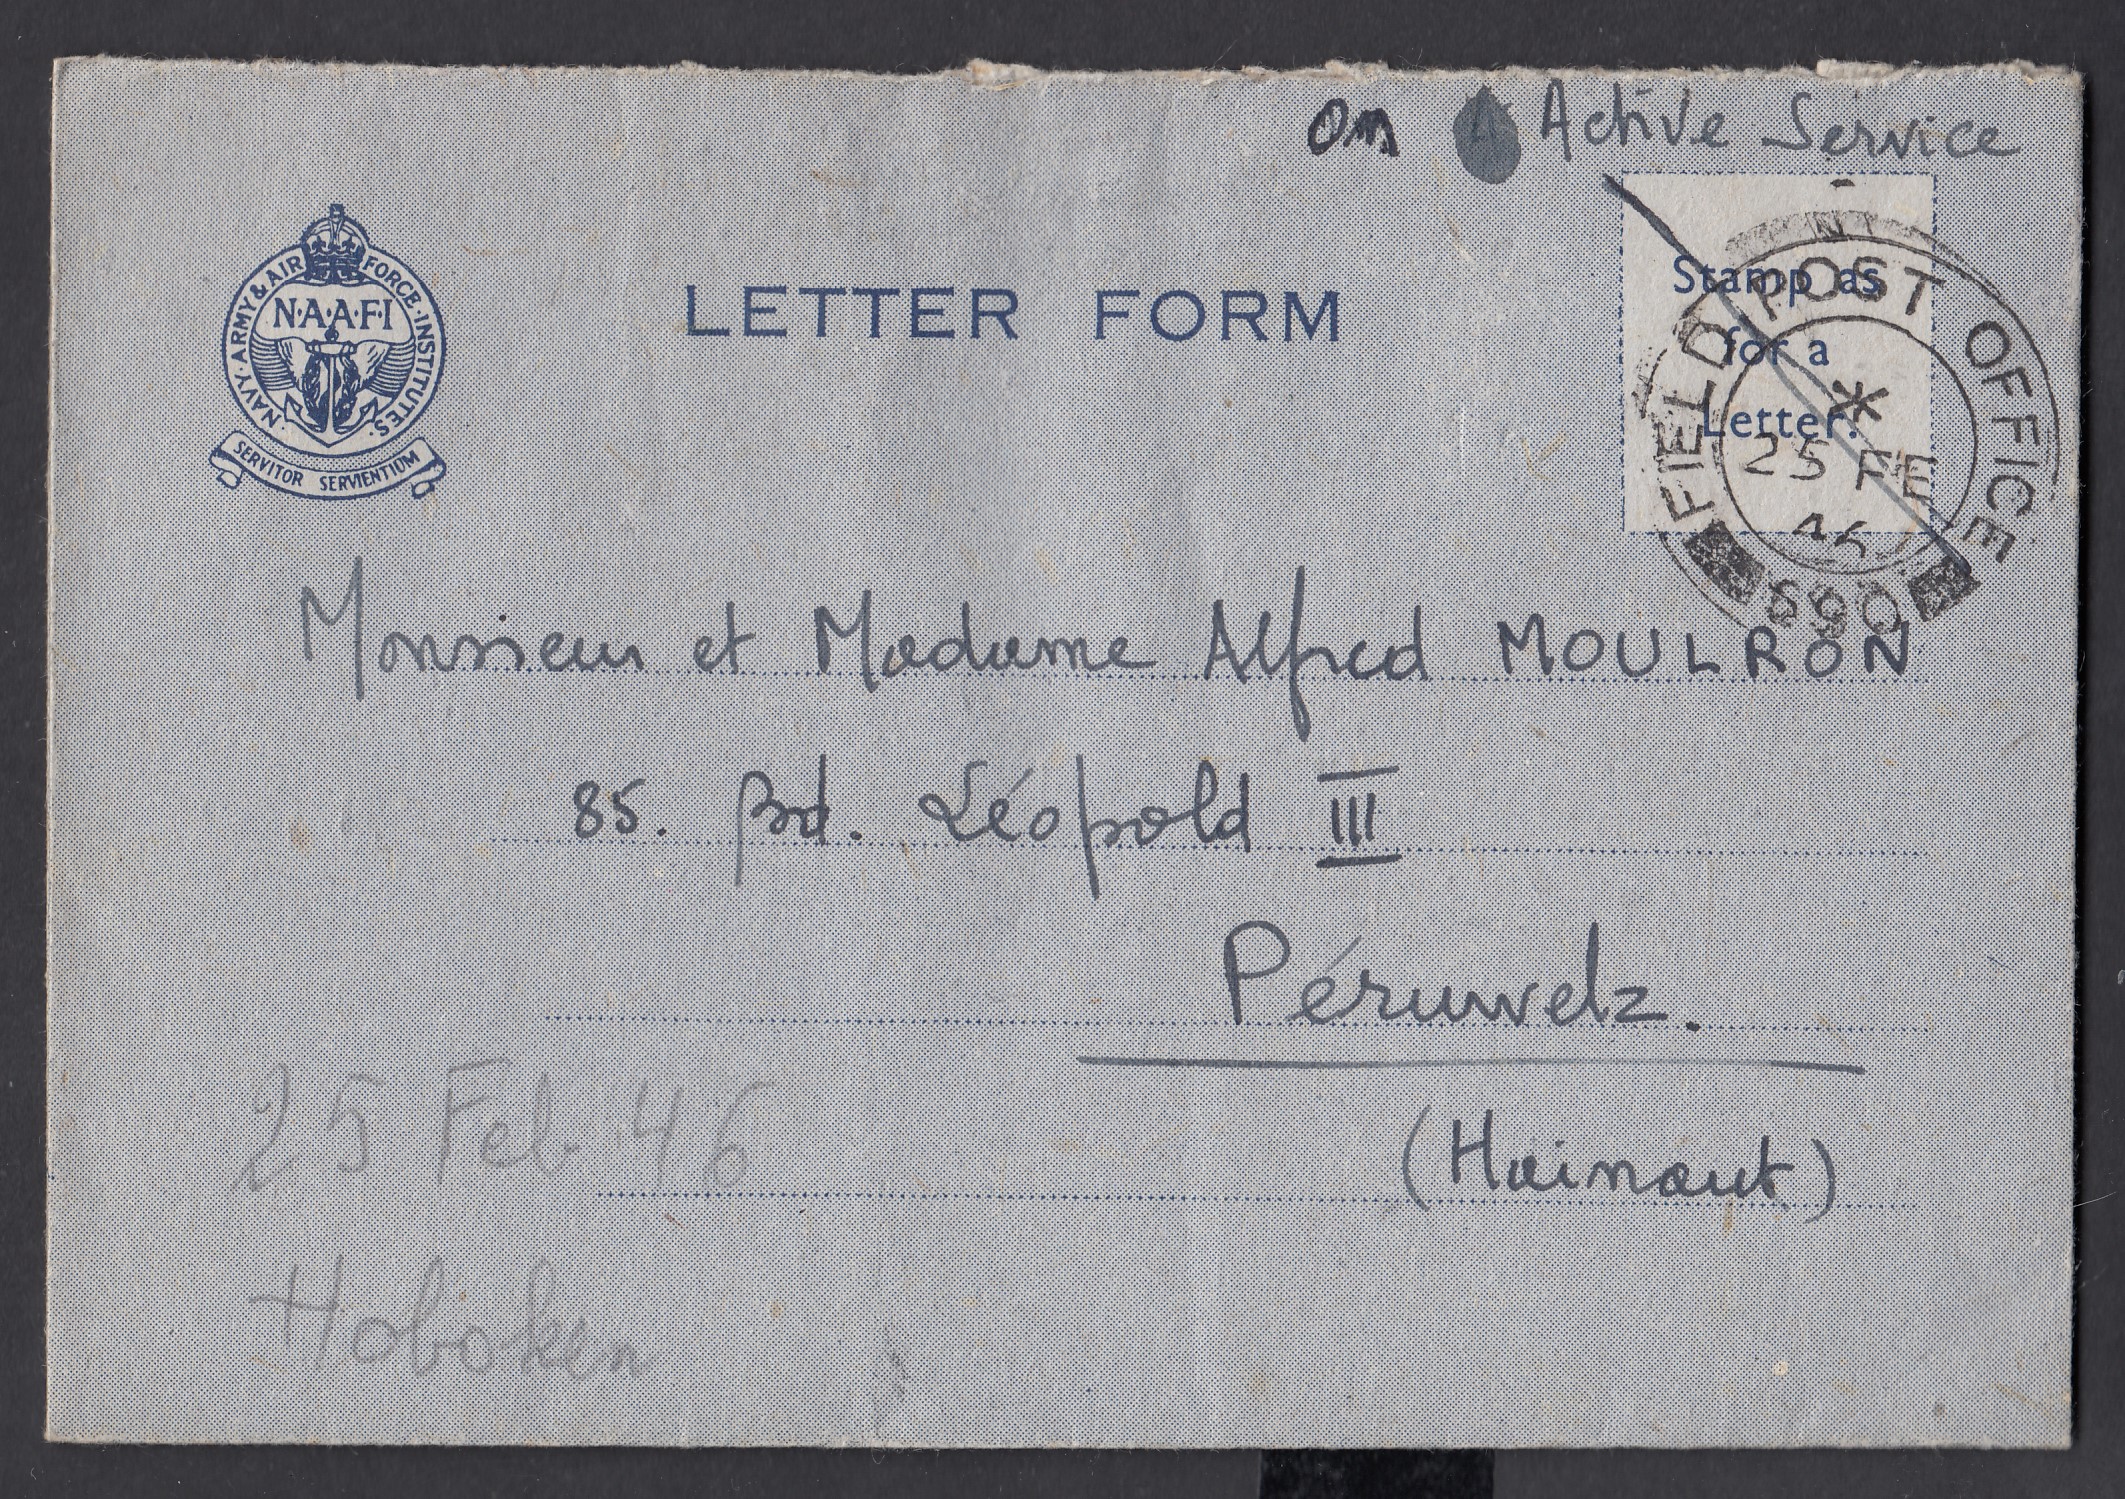 On Active Service
NAVY·ARMY & AIR FORCE·INSTITUTES·
N·A·A·F·I
SERVITOR SERVIENTIUM
LETTER FORM
Stamp as
for a
Letter.
FIELD POST OFFICE
*
25 FE
46
Monsieur et Madame Alfred MOULRON
85. Bd. Léopold III
Péruwelz.
(Hainaut)
25 Feb. 46
Hoboken